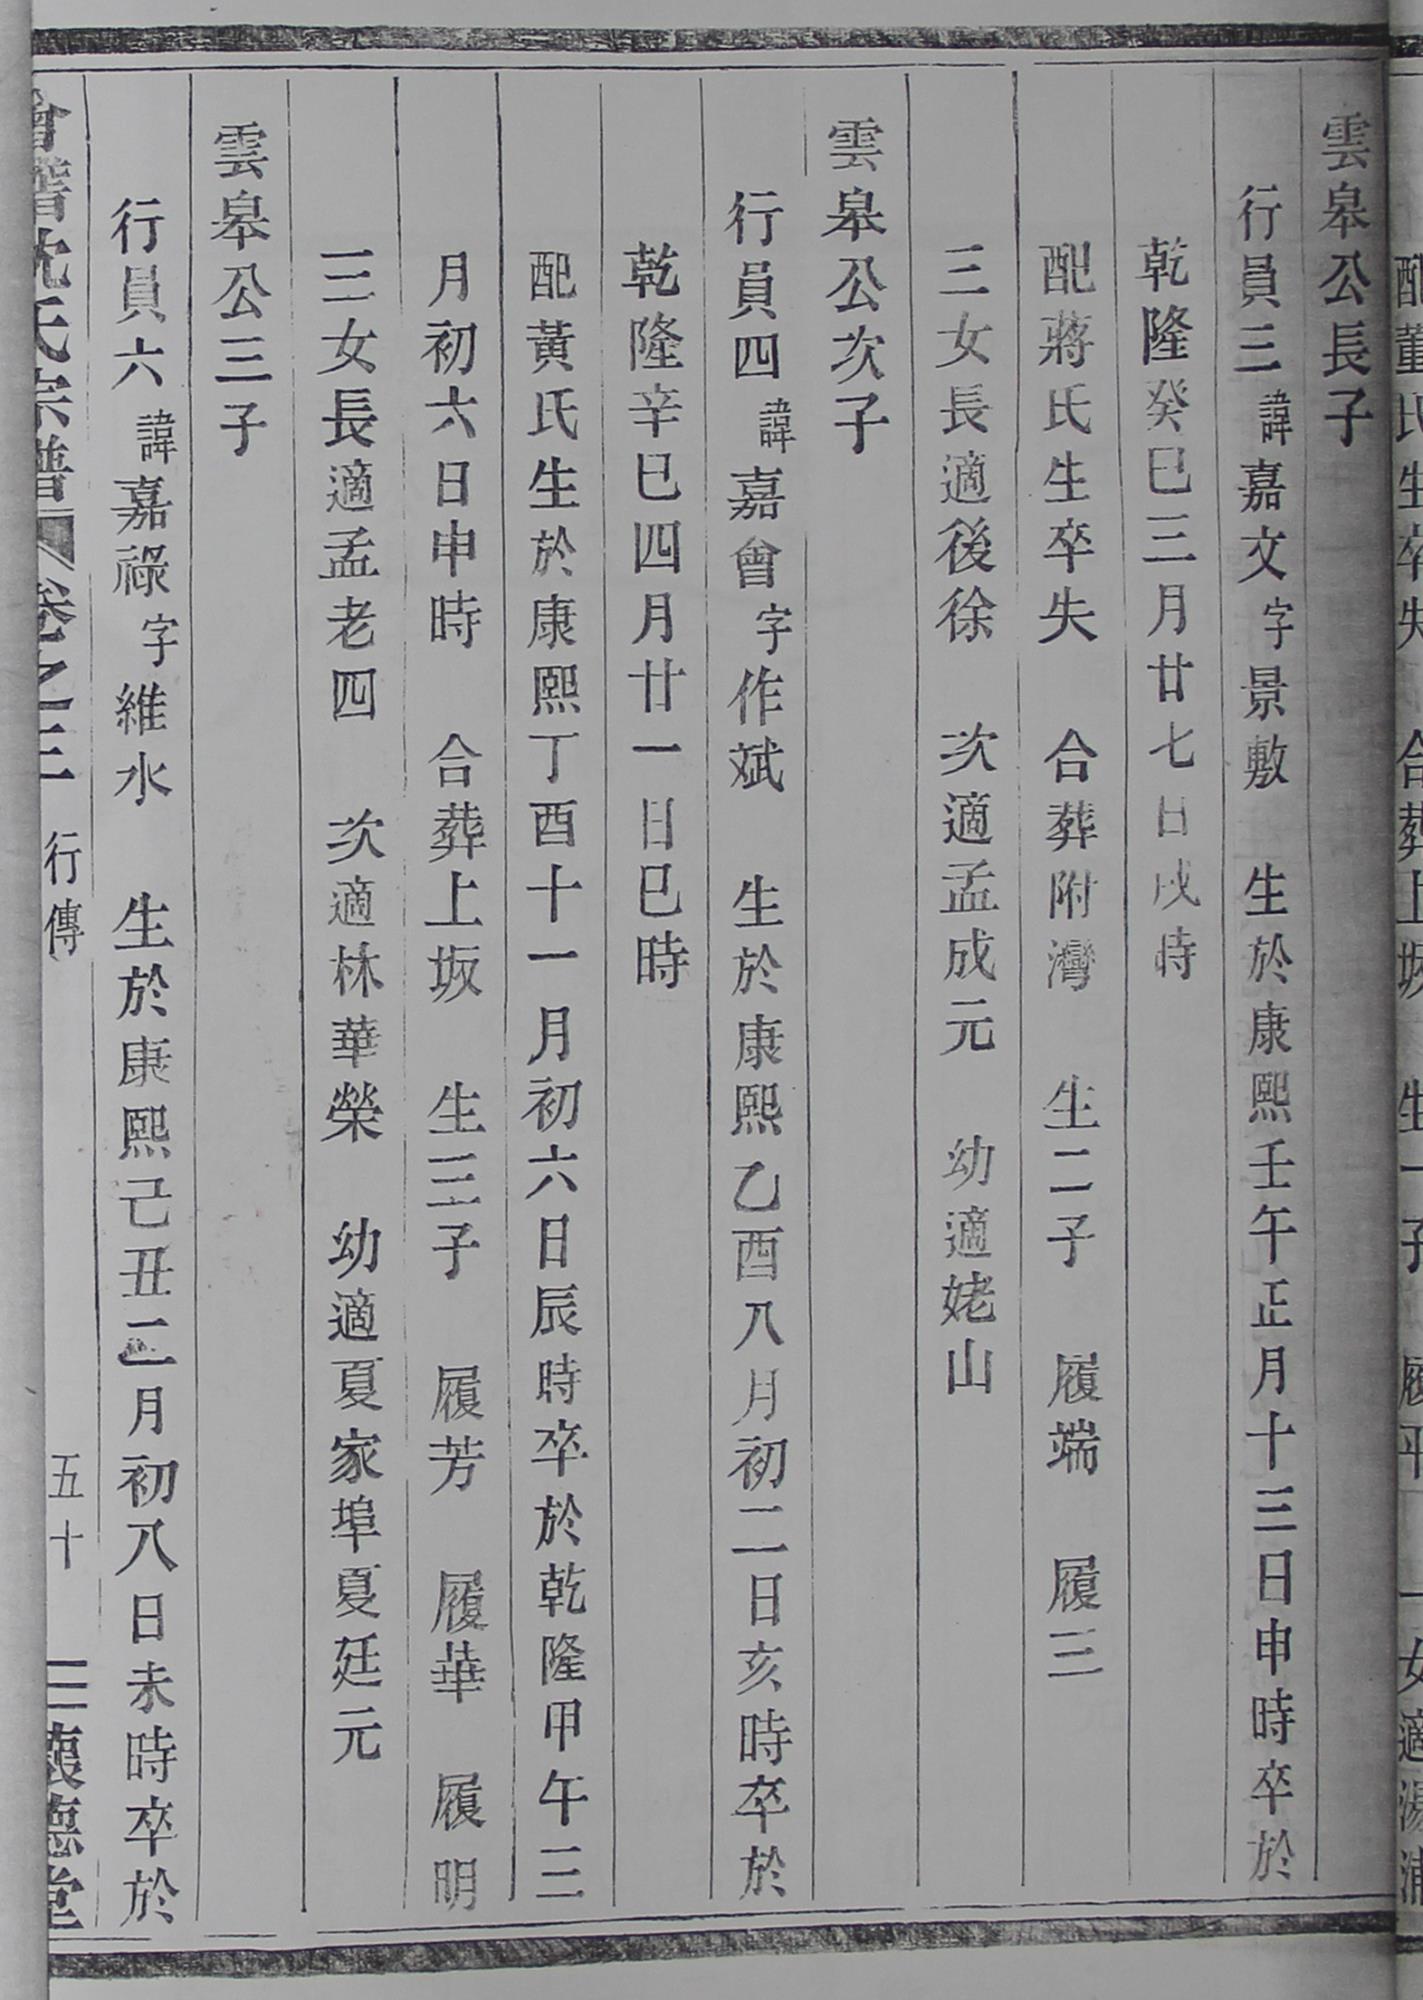 配董氏生卒失　合葬上坂　生一子　履平　一女適湯浦
雲皋公長子
行員三諱嘉文字景敷　生於康熙壬午正月十三日申時卒於
乾隆癸巳三月廿七日戌時
配蔣氏生卒失　合葬附灣　生二子　履端　履三
三女長適後徐　次適孟成元　幼適姥山
雲皋公次子
行員四諱嘉會字作斌　生於康熙乙酉八月初二日亥時卒於
乾隆辛巳四月廿一日巳時
配黃氏生於康熙丁酉十一月初六日辰時卒於乾隆甲午三
月初六日申時　合葬上坂　生三子　履芳　履華　履明
三女長適孟老四　次適林華榮　幼適夏家埠夏廷元
雲皋公三子
行員六諱嘉祿字維水　生於康熙己丑二月初八日未時卒於
會稽沈氏宗譜　卷之三　行傳　五十　懷德堂